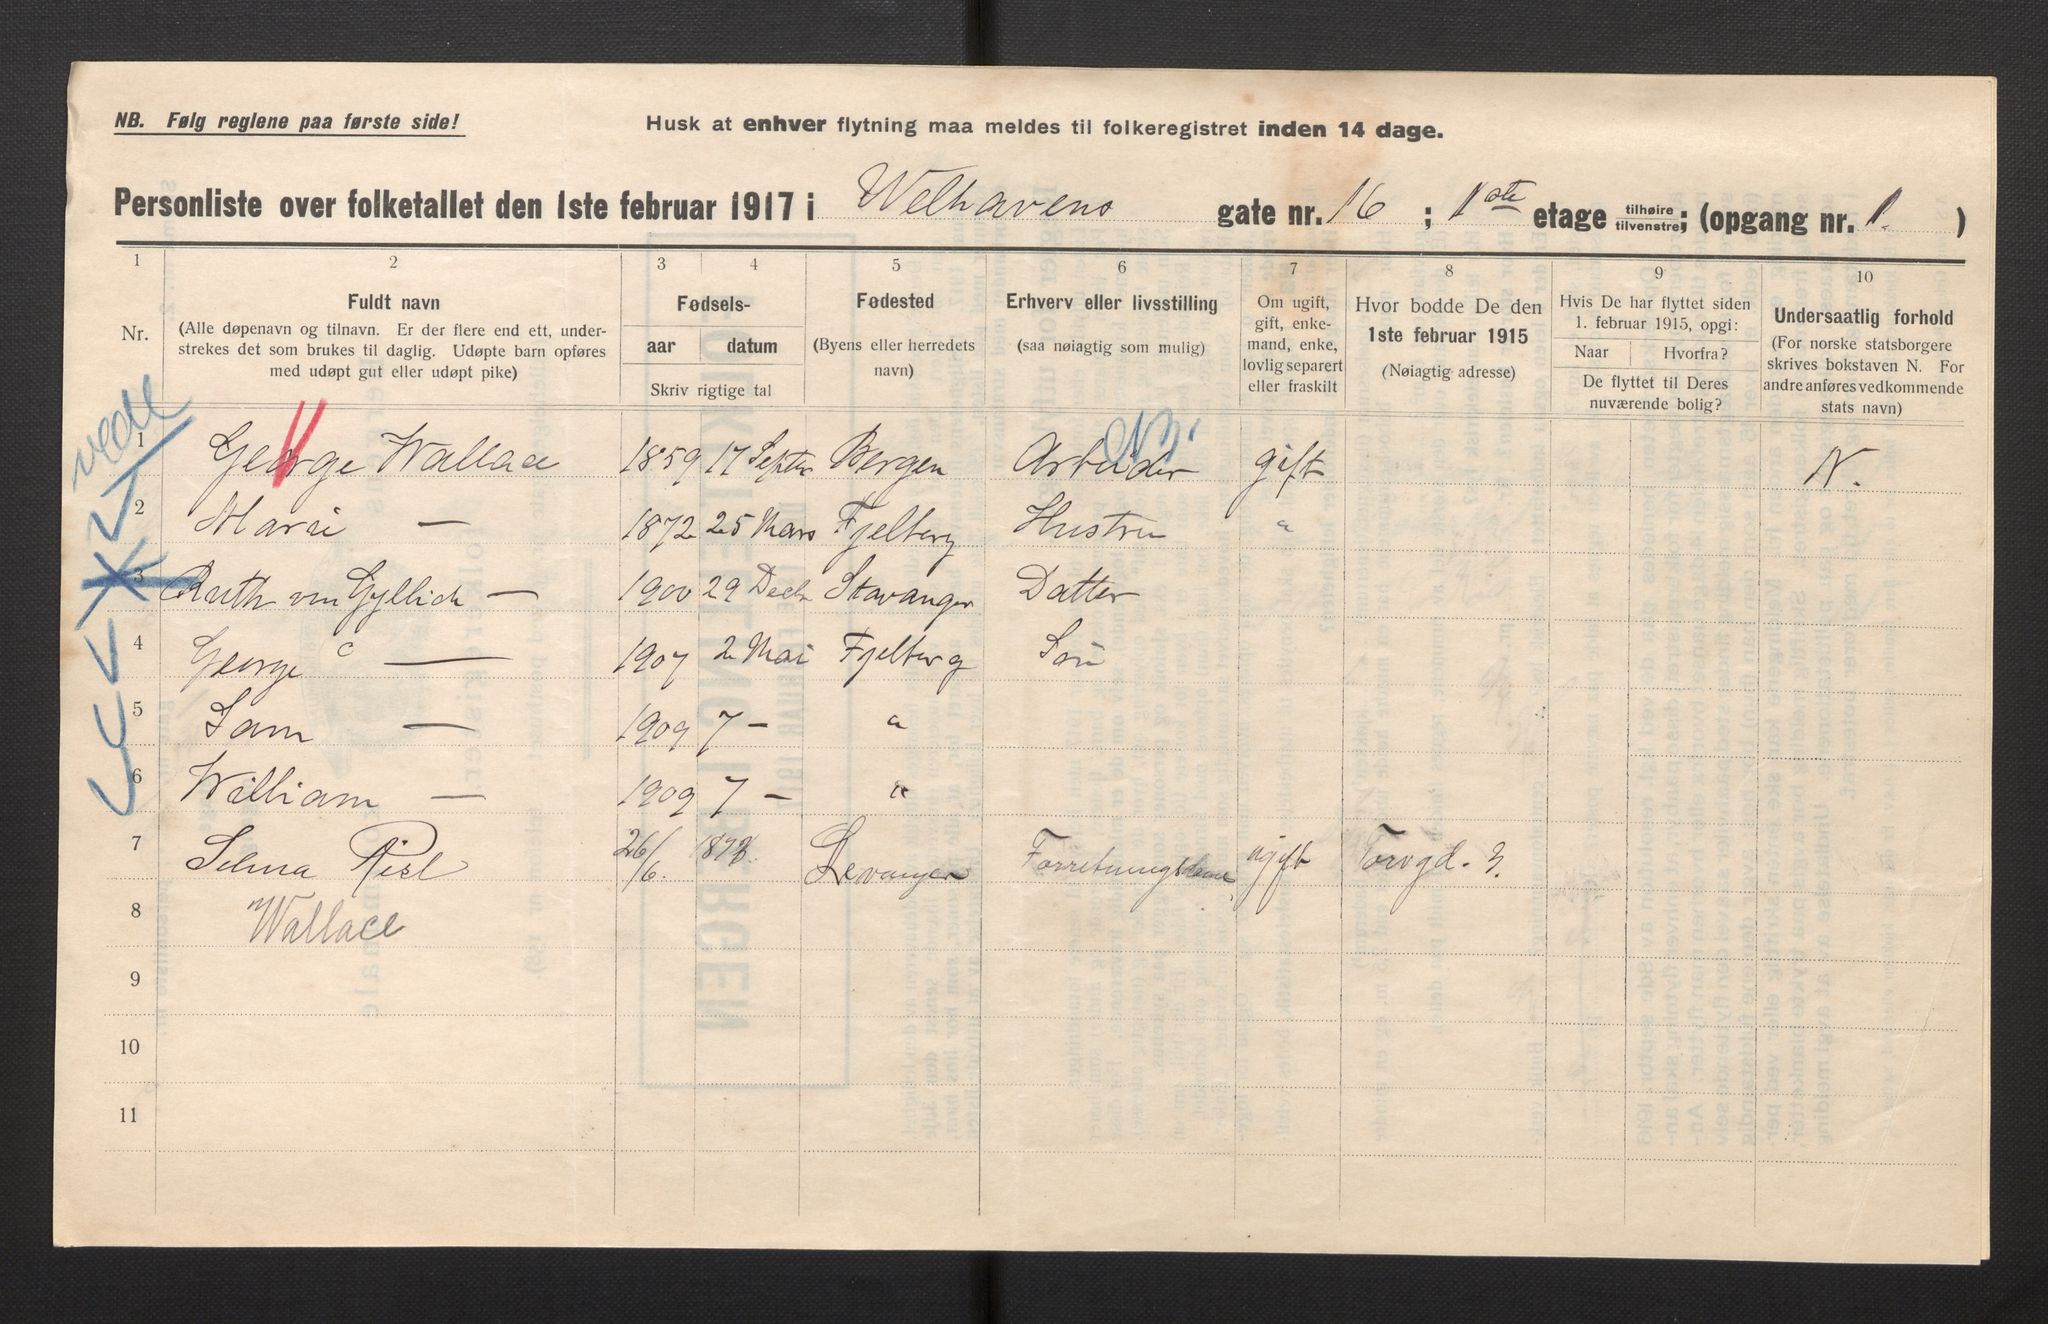 NB. Følg reglene paa første side!
Husk at enhver flytning maa meldes til folkeregistret inden 14 dage.
Personliste over folketallet den 1ste februar 1917 i Welhavens gate nr. 16 ; 1ste etage tilhøire tilvenstre; (opgang nr. 1. )
1 2 3 4 5 6 7 8 9 10
Nr.
Fuldt navn
(Alle døpenavn og tilnavn. Er der flere end ett, under-
strekes det som brukes til daglig. Udøpte barn opføres
med udøpt gut eller udøpt pike)
Fødsels-
aar datum
Skriv rigtige tal
Fødested
(Byens eller herredets
navn)
Erhverv eller livsstilling
(saa nøiagtig som mulig)
Om ugift,
gift, enke-
mand, enke,
lovlig separert
eller fraskilt
Hvor bodde De den
1ste februar 1915
(Nøiagtig adresse)
Hvis De har flyttet siden
1. februar 1915, opgi:
Naar Hvorfra?
De flyttet til Deres
nuværende bolig?
Undersaatlig forhold
(For norske statsborgere
skrives bokstaven N. For
andre anføres vedkommende
stats navn)
1 George Wallace 1859 17 Septr Bergen Arbeider gift N.
2 Marie — 1872 25 Mars Fjelberg Hustru "
3 Ruth von — 1900 29 Decbr Stavanger Datter
4 George C — 1907 2 Mai Fjelberg Søn
5 Sam — 1909 7 — "
6 William — 1909 7 — "
7 Selma 26/6. Levanger Forretningsdame ugift Torvgd. 3.
8 Wallace
9
10
11